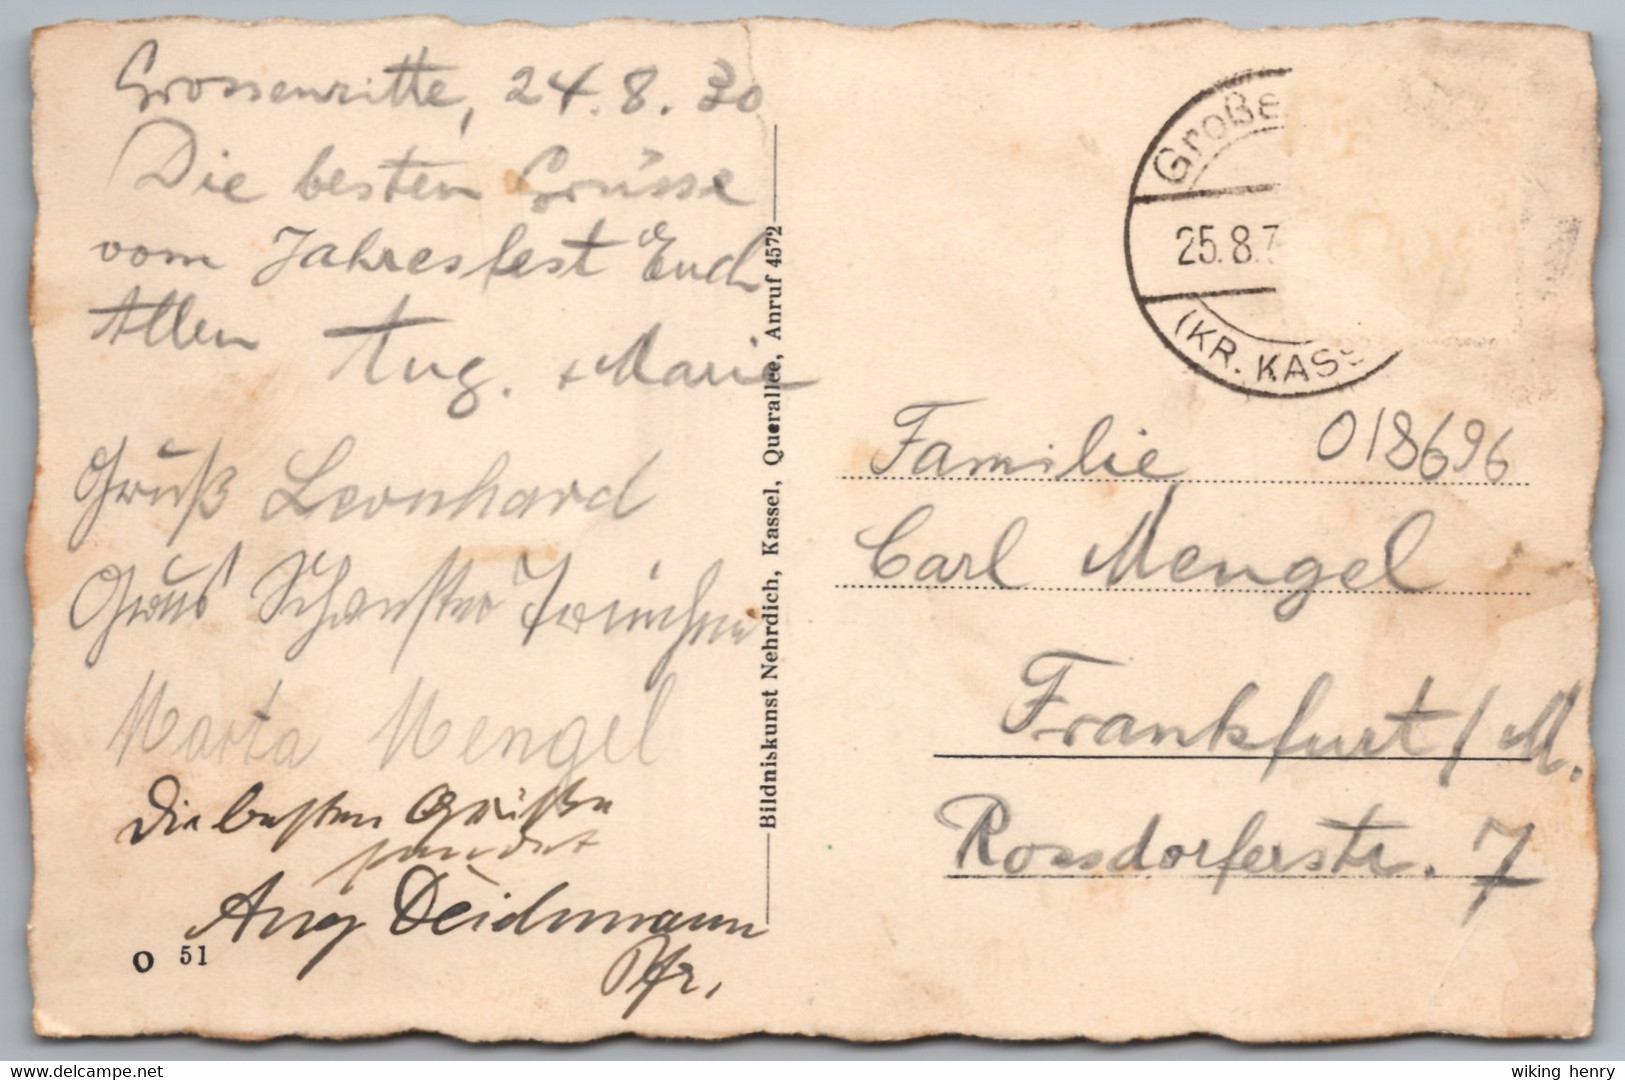 Grossenritte, 24.8.30
Die besten Grüsse
vom Jahresfest Euch
Allen Aug. + Marie
Gruß Leonhard
Gruß Schwester
Marta Mengel
Die besten Grüße
sendet
Aug Deichmann
Pfr.
O 51
Bildniskunst Nehrdich, Kassel, Querallee, Anruf 4572
Große
25.8.3
(KR. KASS
018696
Familie
Carl Mengel
Frankfurt / M.
Rossdorferstr. 7
wiking henry
delcampe.net